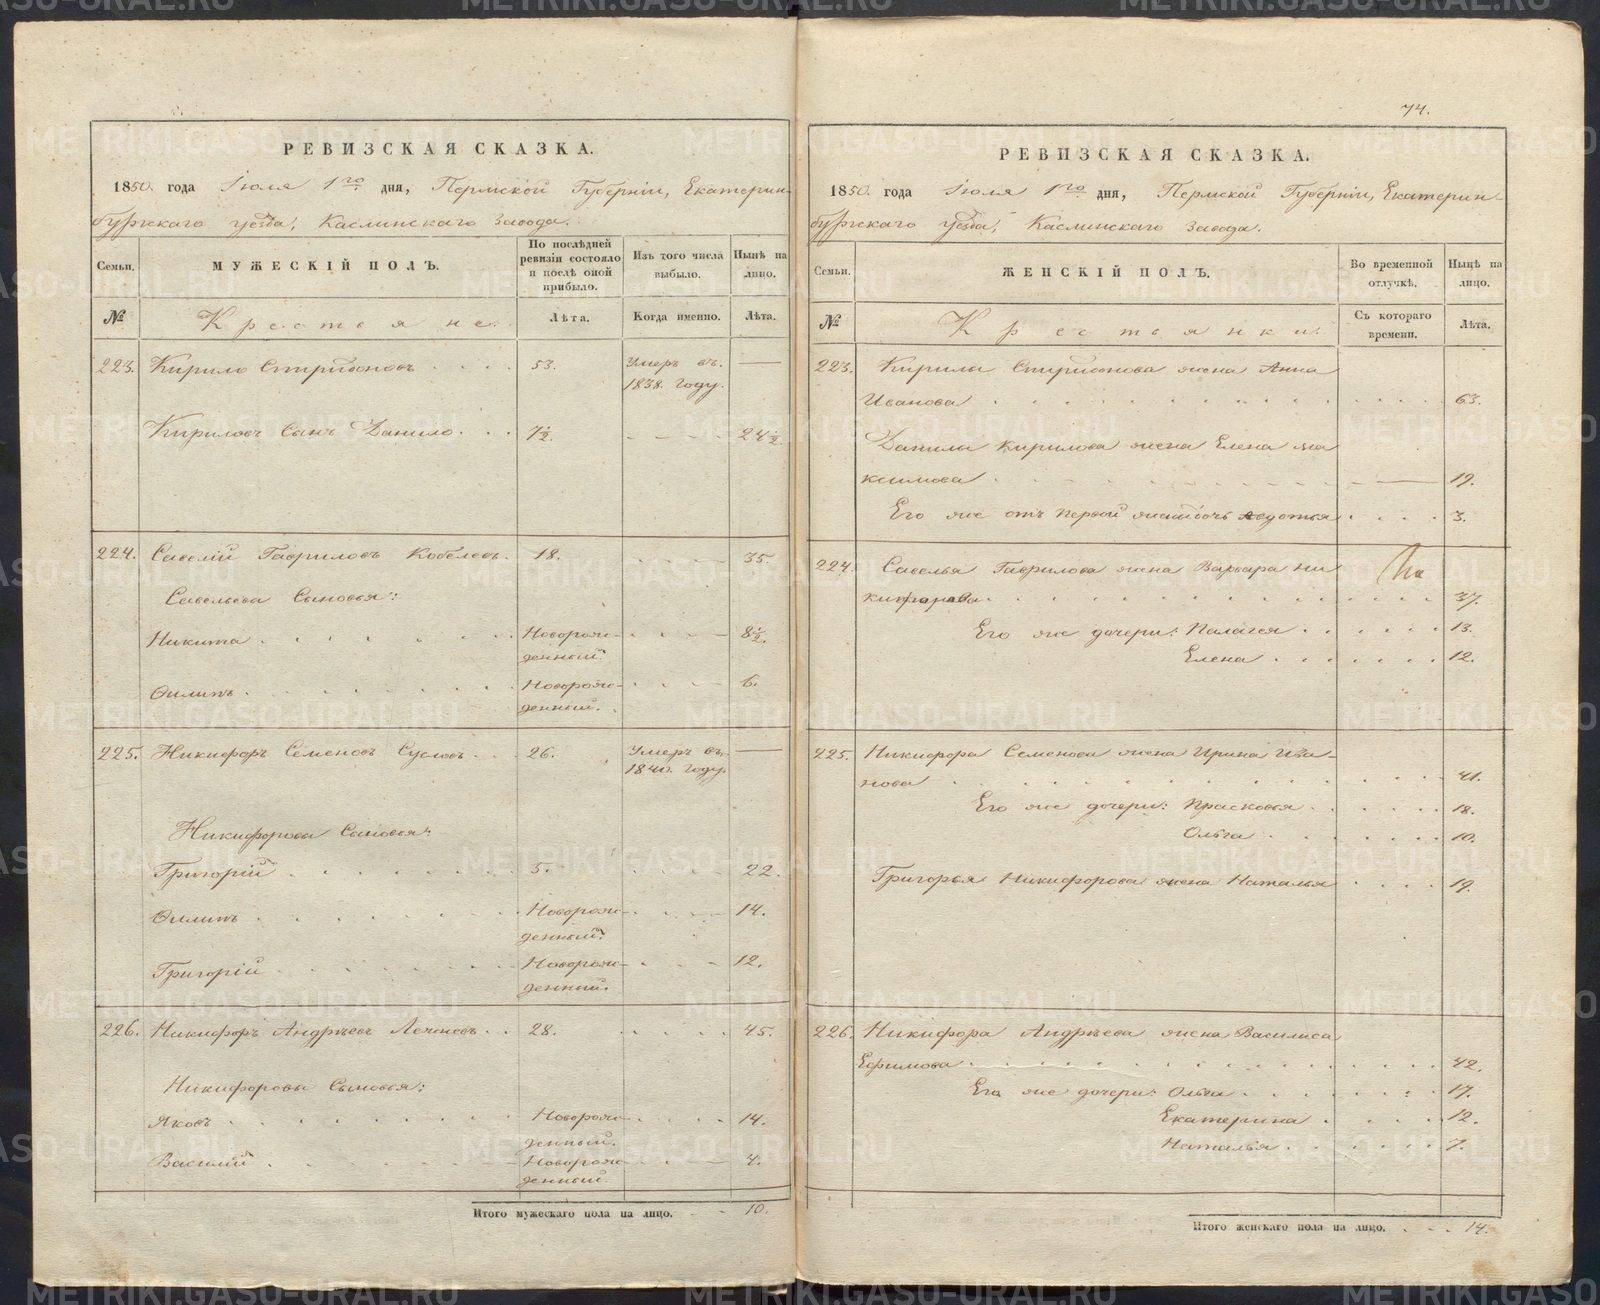 РЕВИЗСКАЯ СКАЗКА.
1850. года Іюля 1го дня, Пермской Губерніи, Екатерин-
бургскаго уѣзда, Каслинскаго завода.
Семьи.
МУЖЕСКІЙ ПОЛЪ.
По послѣдней ревизіи состояло и послѣ оной прибыло.
Изъ того числа выбыло.
Нынѣ на лицо.
№
Крестьяне:
Лѣта.
Когда именно.
Лѣта.
223. Кирило Спиридоновъ 53. Умеръ въ.
1838. году.
Кириловъ Сынъ Данило 7½. 24½.
224. Савелій Гавриловъ Кобелевъ. 18. 35.
Савельева Сыновья:
Никита Новорож- 8½.
денный.
Филипъ Новорож- 6.
денный.
225. Никифоръ Семеновъ Сусловъ 26. Умеръ въ.
1840. году
Никифорова Сыновья:
Григорій 5. 22.
Филипъ Новорож- 14.
денный.
Григорій Новорож- 12.
денный.
226. Никифоръ Андрѣевъ 28. 45.
Никифоровы Сыновья:
Яковъ Новорож- 14.
денный.
Василій Новорож- 4.
денный.
Итого мужескаго пола на лицо. 10.
74.
РЕВИЗСКАЯ СКАЗКА.
1850. года Іюля 1го дня, Пермской Губерніи, Екатерин
бургскаго уѣзда, Каслинскаго завода.
Семьи.
ЖЕНСКІЙ ПОЛЪ.
Во временной отлучкѣ.
Нынѣ на лицо.
№
Крестьянки:
Съ котораго времени.
Лѣта.
223. Кирилы Спиридонова жена Анна
Иванова 63.
Данилы Кирилова жена Елена Ма
ксимова 19.
Его же отъ первой жены дочь Авдотья 3.
224. Савелья Гаврилова жена Варвара Ни
кифорова 37.
Его же дочери: Палагея 13.
Елена 12.
225. Никифора Семенова жена Ирина Ива-
нова 41.
Его же дочери: Прасковья 18.
Ольга 10.
Григорья Никифорова жена Наталья 19.
226. Никифора Андрѣева жена Василиса
Ефимова 42.
Его же дочери: Ольга 17.
Екатерина 12.
Наталья 7.
Итого женскаго пола на лицо. 14.
METRIKI.GASO-URAL.RU